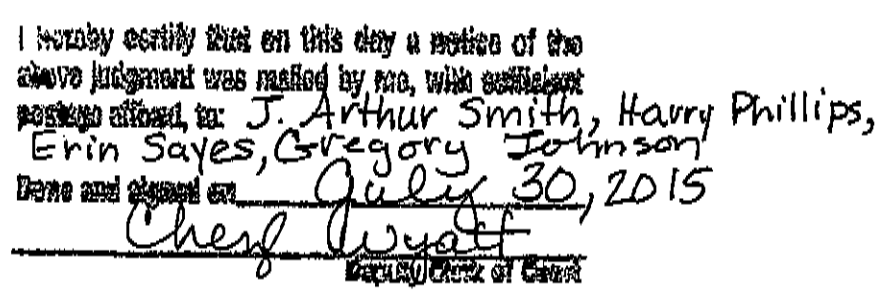 I hereby certify that on this day a notice of the
above judgment was mailed by me, with sufficient
postage affixed, to: J. Arthur Smith, Harry Phillips,
Erin Sayes, Gregory Johnson
Done and signed on July 30, 2015
Cheryl Wyatt
Deputy Clerk of Court